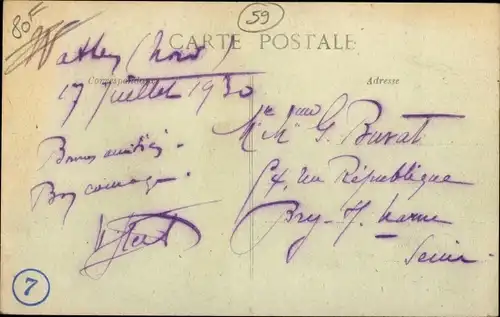 80F
59
CARTE POSTALE
Correspondance
Adresse
Watten (Nord)
17 Juillet 1930
Bonnes amitiés.
Bon courage.
Mr Mme G. Buvat
64, rue République
Bry-s/ Marne
Seine
7